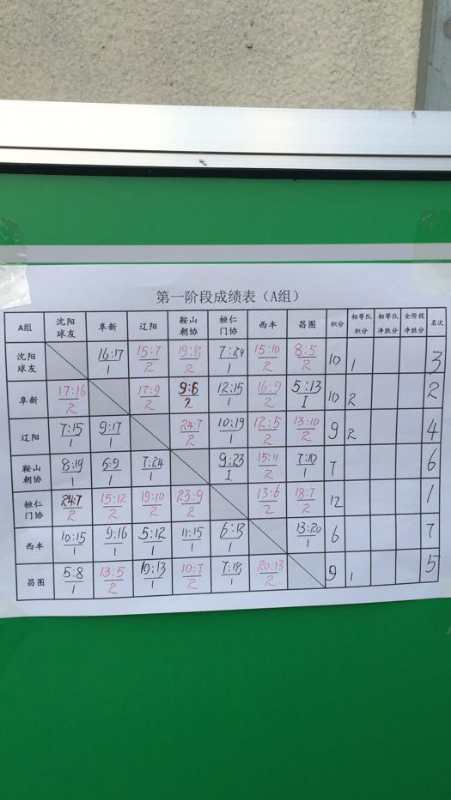 第一阶段成绩表（A组）
A组 沈阳球友 阜新 辽阳 鞍山朝协 桓仁门协 西丰 昌图 积分 相等队积分 相等队净胜分 全阶段净胜分 名次
沈阳球友 16:17/1 15:7/2 19:8/2 7:24/1 15:10/2 8:5/2 10 1 3
阜新 17:16/2 17:9/2 9:6/2 12:15/1 16:9/2 5:13/1 10 2 2
辽阳 7:15/1 9:17/1 24:7/2 10:19/1 12:5/2 13:10/2 9 2 4
鞍山朝协 8:19/1 6:9/1 7:24/1 9:23/1 15:11/2 7:10/1 7 6
桓仁门协 24:7/2 15:12/2 19:10/2 23:9/2 13:6/2 18:7/2 12 1
西丰 10:15/1 9:16/1 5:12/1 11:15/1 6:13/1 13:20/1 6 7
昌图 5:8/1 13:5/2 10:13/1 10:7/2 7:18/1 20:13/2 9 1 5